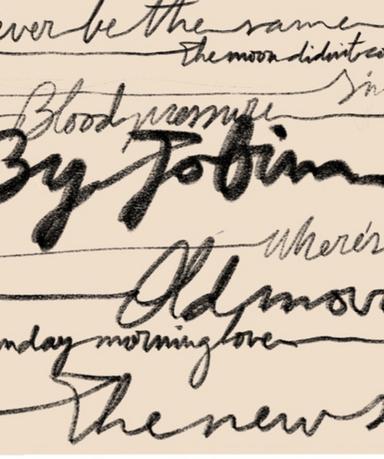 ever be the same
The moon didn't co
I'm
Blood pressure
By Jobim
Where's
Old mov
nday morning love
The new s